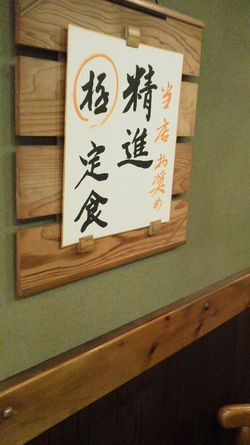 当店お奨め
精進
極定食